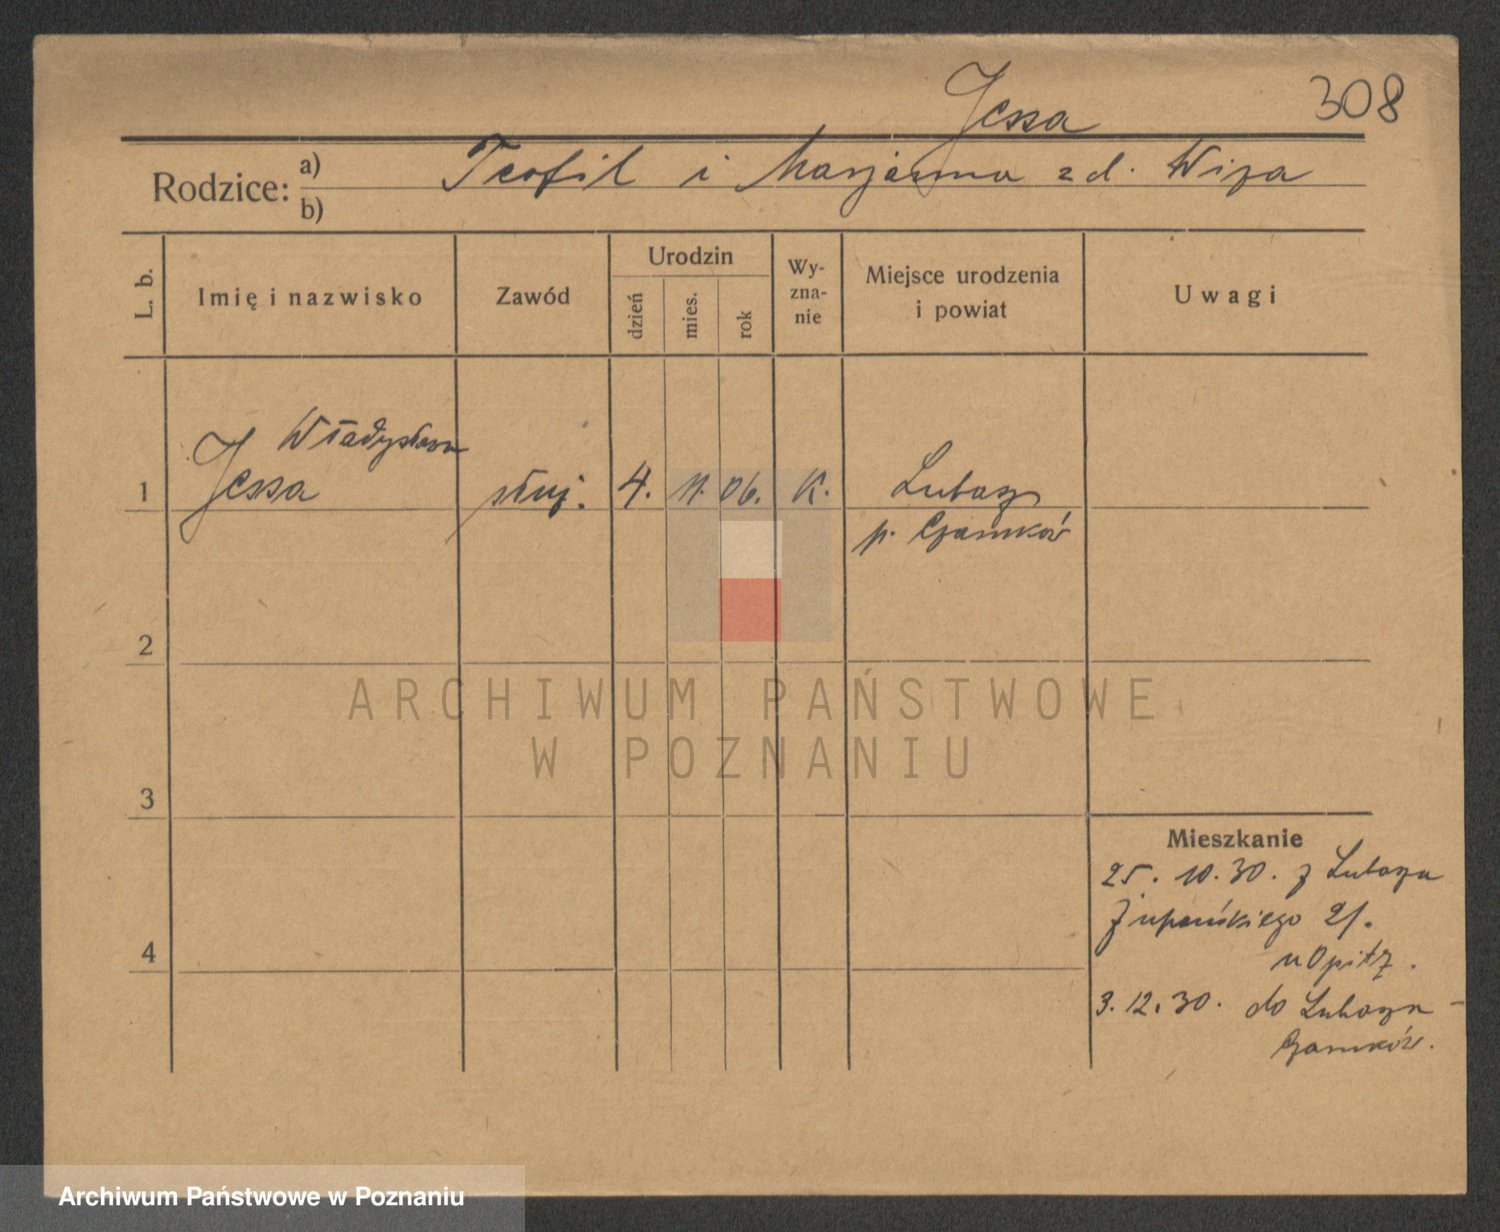 Jessa
308
Rodzice: a) Teofil i Marjanna zd. Wiza
b)
L. b.
Imię i nazwisko
Zawód
Urodzin
dzień
mies.
rok
Wy-
zna-
nie
Miejsce urodzenia
i powiat
Uwagi
Władysława
1 Jessa służ. 4. 11. 06. K. Lubasz
p. Czarnków
2
3
4
ARCHIWUM PAŃSTWOWE
W POZNANIU
Mieszkanie
25. 10. 30. z Lubasza
Żupańskiego 21.
u Opitz.
3. 12. 30. do Lubasza -
Czarnków.
Archiwum Państwowe w Poznaniu